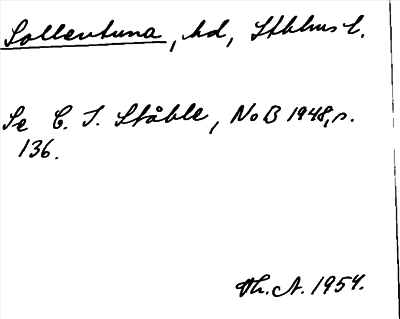 Sollentuna, hd, Sthlms l.
Se C. I. Ståhle, NoB 1948, s.
136.
Th. A. 1954.